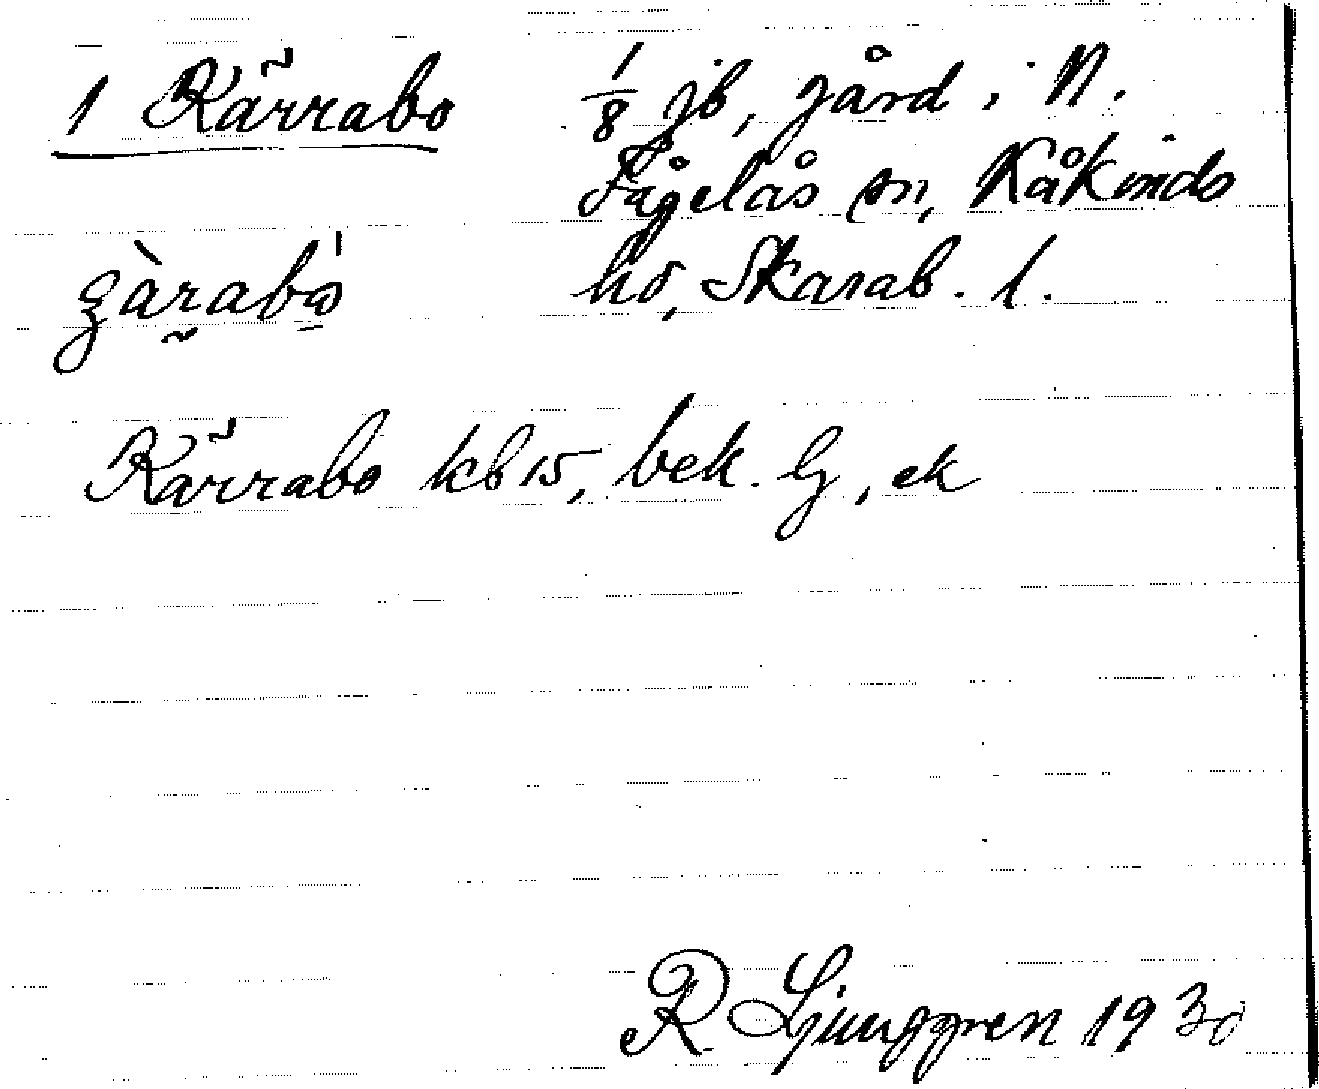 1 Kärrabo 1/8 jb, gård i N.
Fågelås sn, Kåkinds
hd, Skarab. l.
Kärrabo kb 15, bek. lj, ek
R. Ljunggren 1930